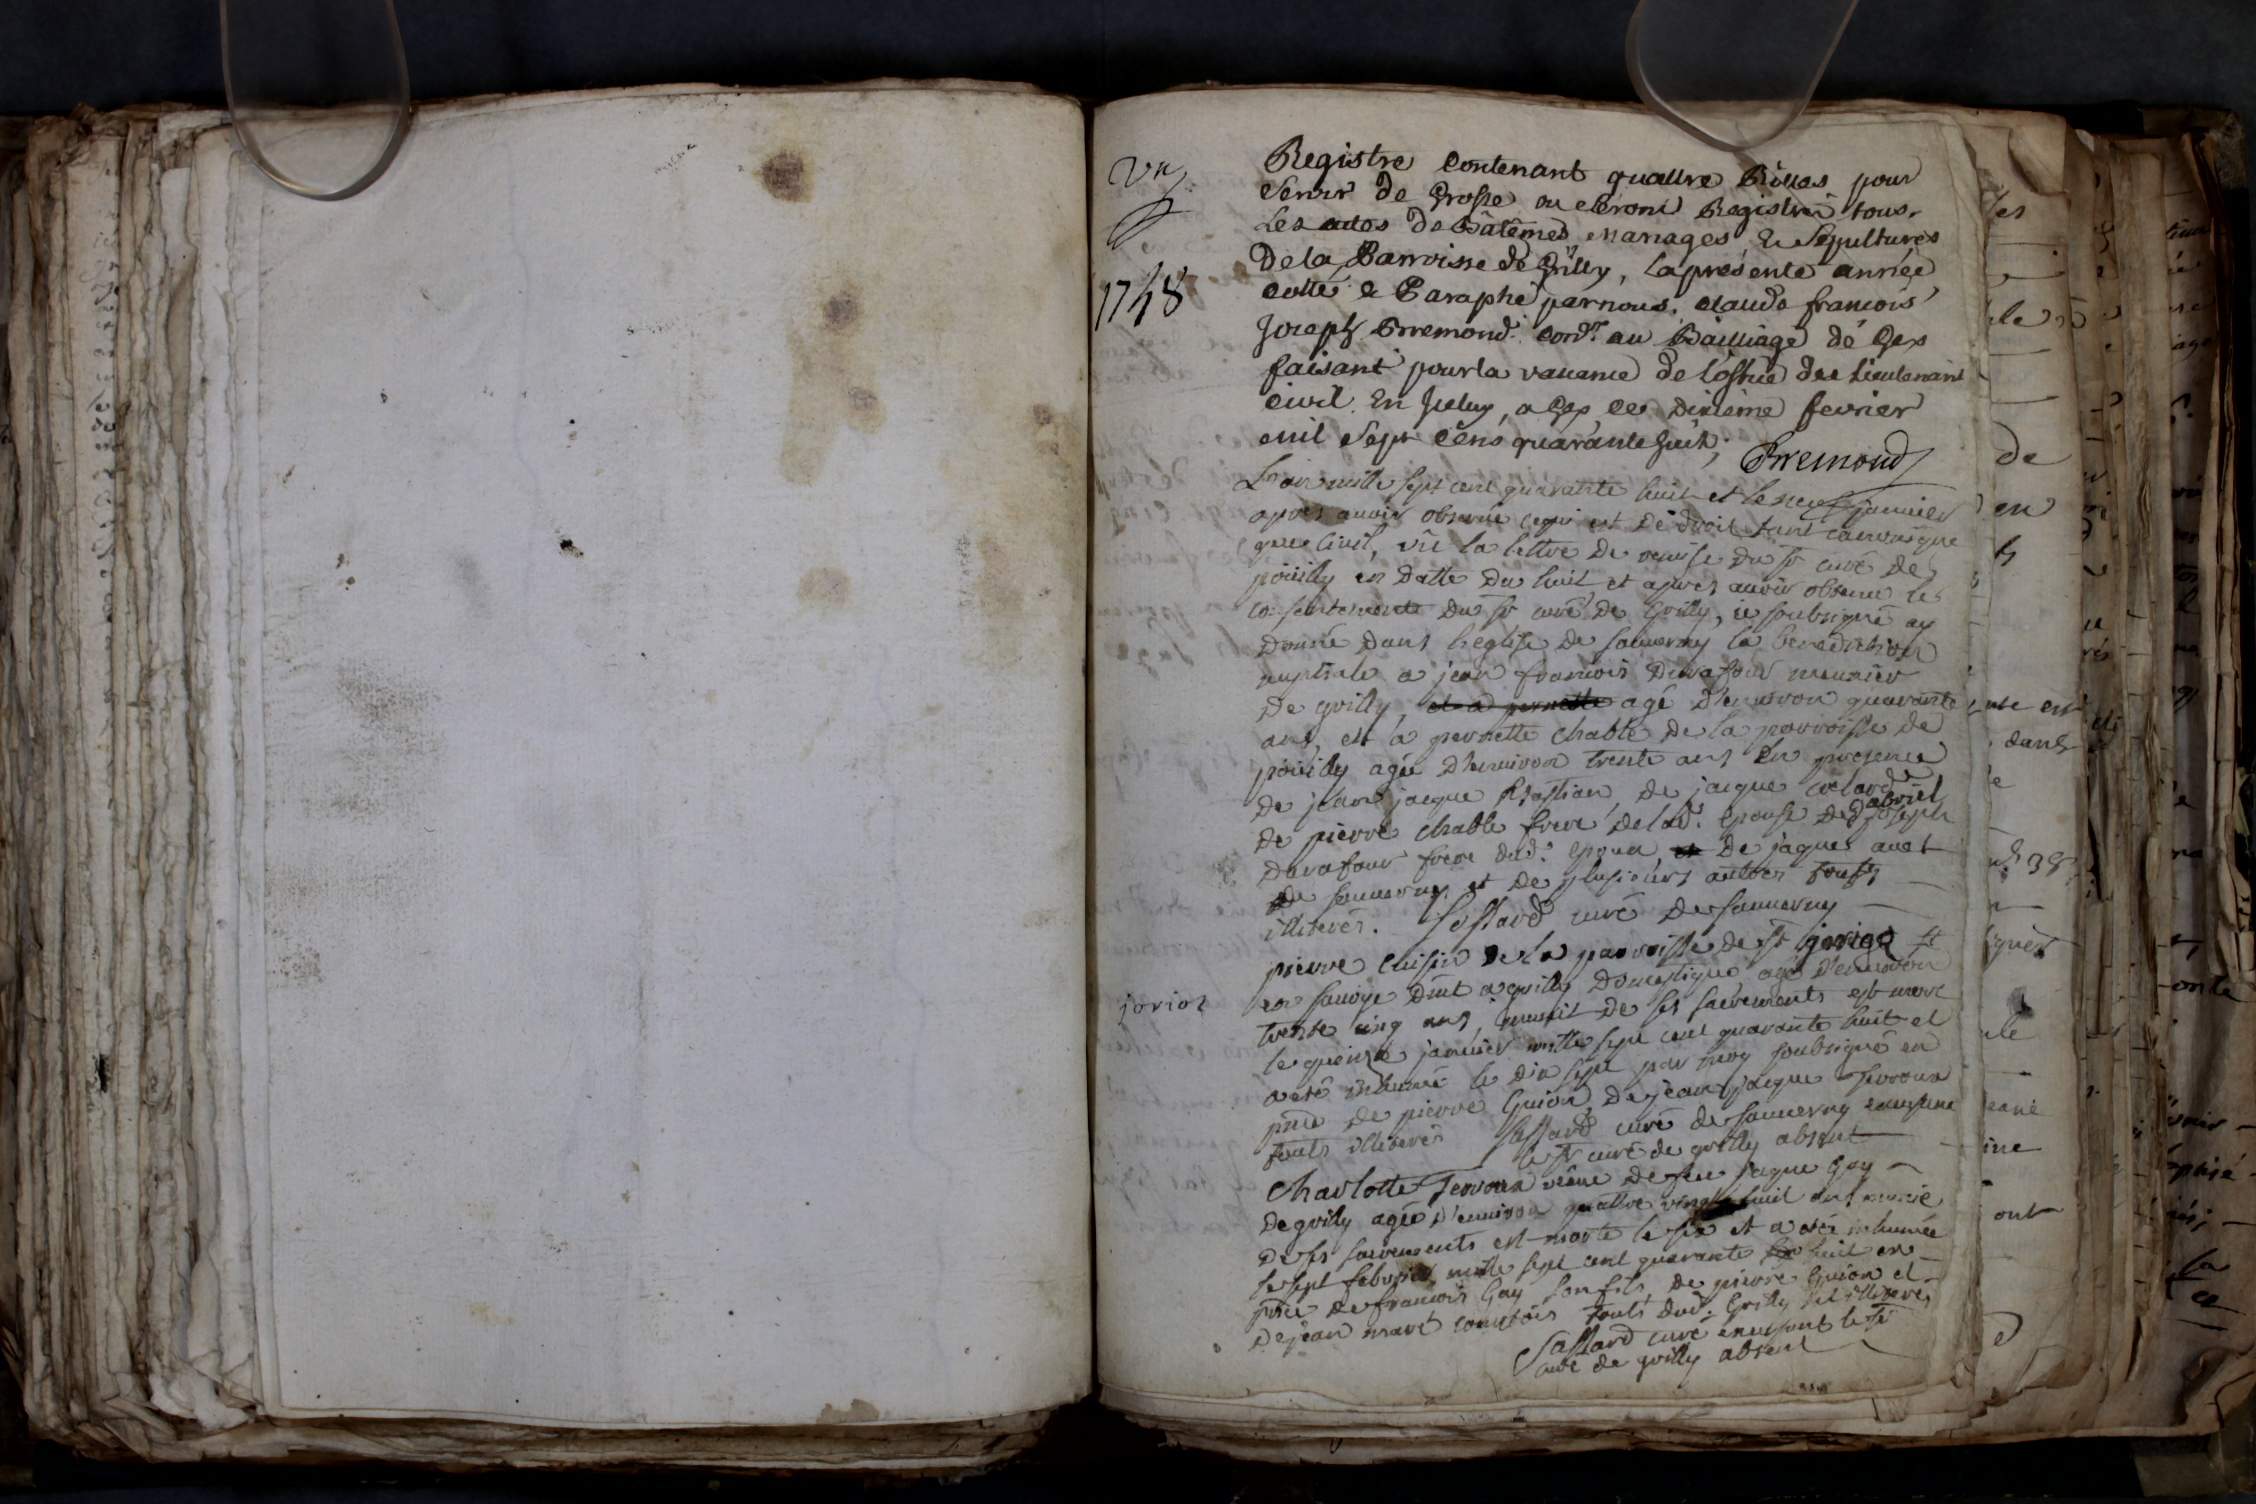 Vn
1748
Registre Contenant quattre Rolles pour
Servir de Grosse ou seront Registrés tous
Les actes de Bâtêmes Mariages & Sepultures
De la Parroisse de Grilly, la présente année
Cotté & Paraphé par nous. Claude francois
Joseph Brremond. Conser au Bailliage de Gex
faisant pour la vacance de l'office de Lieutenant
Civil. En Jceluy, a Gex ce Dixième fevrier
mil Sept Cens quarante huit,
Brremond
L'an mille sept cent quarante huit et le neuf janvier
apres avoir observé ce qui est de droit tant canonique
que Civil, vû la lettre de remise du sr curé de
poüilly en datte du huit et apres avoir obtenu le
consentement du sr curé de Grilly, ie soubsigné ay
Donné dans l'eglise de sauverny la Benediction
nuptiale a jean francois Duvafour meunier
De grilly, et a pernette agé d'environ quarante
ans, et a pernette chable de la parroisse de
poüilly agée d'environ trente ans en presence
De jean jacque Bastian, de jacque
De pierre chable frere de lad. epouse de Gabriel joseph
Duvafour frere dud. epoux, et De jaques
De sauverny et de plusieurs autres touts
illiterés. Sassard curé De Sauverny
jorioz
pierre cuisin De la parroisse de st jorioz
en savoye dmt a grilly Domestique agé d'environ
trente cinq ans, munit de ses sacrements est mort
le quinze janvier mille sept cent quarante huit et
a eté inhumé le dix sept par moy soubsigné en
pnce de pierre Guion, De jean jacque Servoux
touts illiterés Sassard curé de sauverny
le sr curé de grilly absent
Charlotte Servoux veuve De feu jaque Gay
De grilly agée d'environ quattre vingt huit ans munie
De ses sacrements est morte le six et a eté inhumée
le sept febvrier mille sept cent quarante huit en
pnce De francois Gay son fils, De pierre Guion et
De jean marc comtois touts dud. Grilly et illiterés
Sassard curé
curé de grilly absent